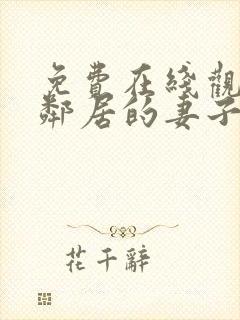 免費在綫觀
鄰居的妻子
花千辭